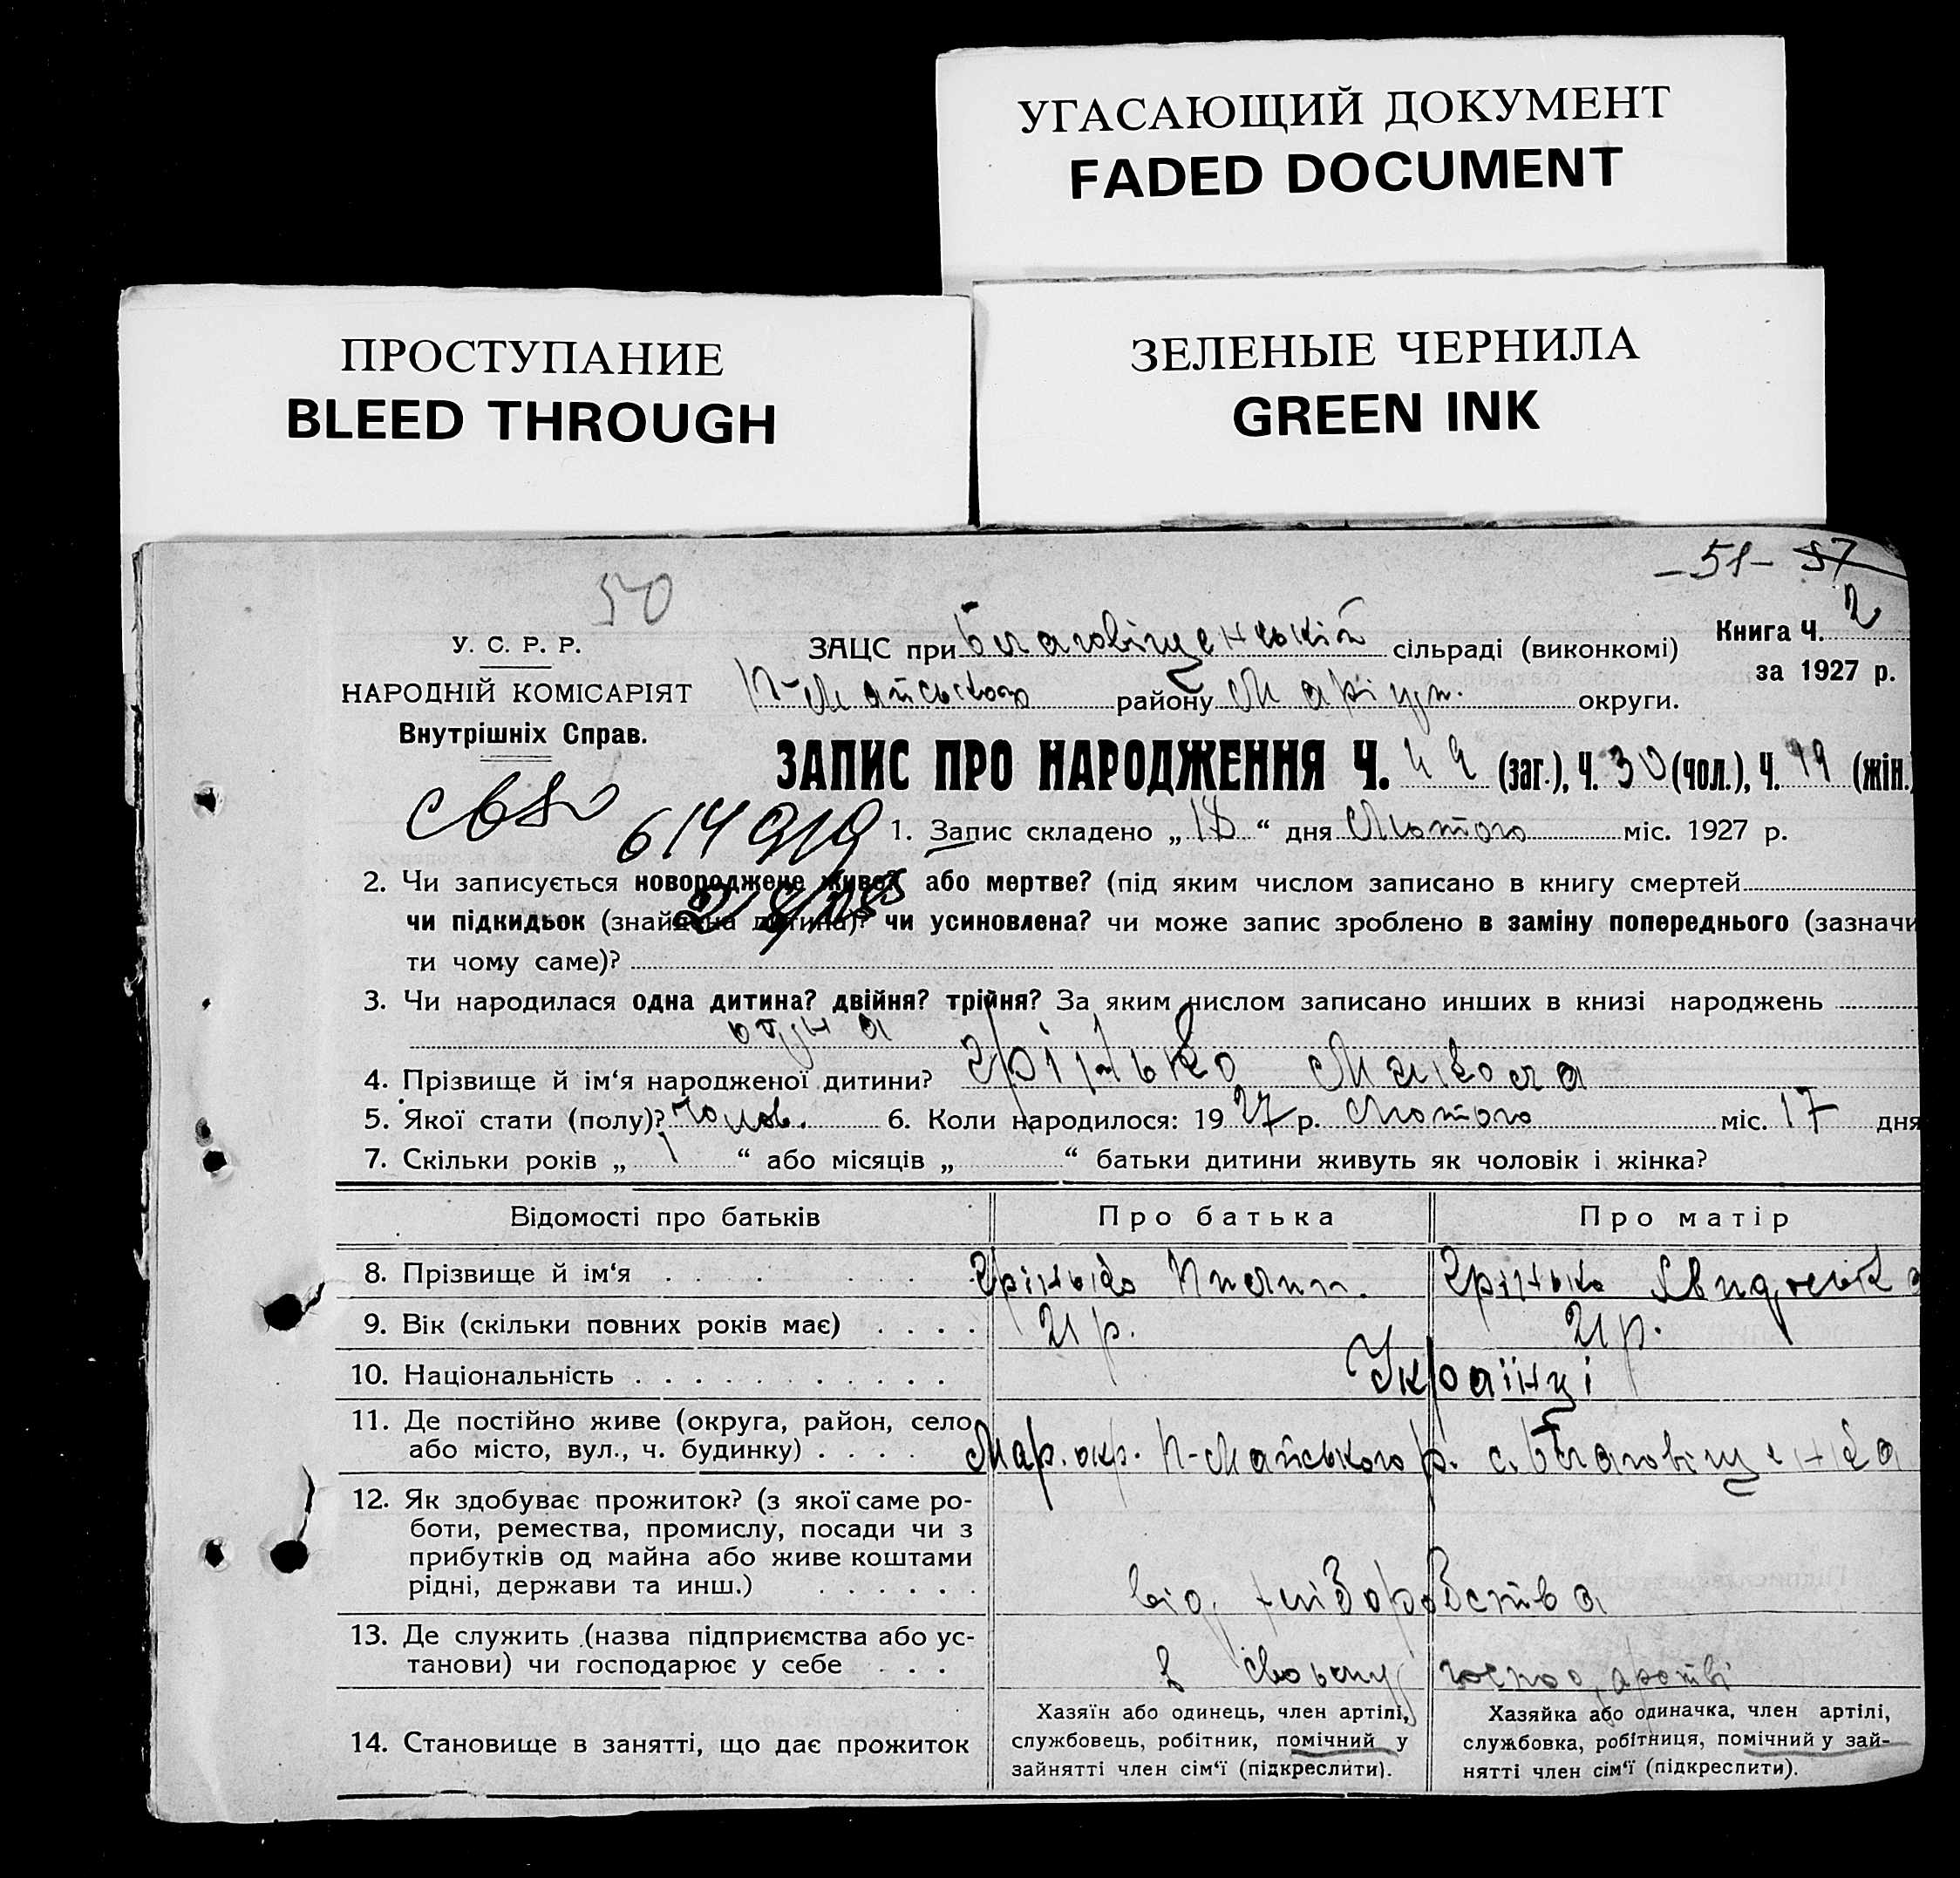 УГАСАЮЩИЙ ДОКУМЕНТ
FADED DOCUMENT
ПРОСТУПАНИЕ
BLEED THROUGH
ЗЕЛЕНЫЕ ЧЕРНИЛА
GREEN INK
-51- 57
50
У. С. Р. Р.
НАРОДНІЙ КОМІСАРІЯТ
Внутрішніх Справ.
ЗАЦС при Благовіщенській сільраді (виконкомі)
Книга Ч. 2
за 1927 р.
П-Майського району Маріуп. округи.
ЗАПИС ПРО НАРОДЖЕННЯ Ч. 49 (заг.), Ч. 30 (чол.), Ч. 19 (жін.)
614919
1. Запис складено „18“ дня Лютого міс. 1927 р.
2. Чи записується новороджене живе? або мертве? (під яким числом записано в книгу смертей
чи підкидьок (знайдена дитина)? чи усиновлена? чи може запис зроблено в заміну попереднього (зазначи
ти чому саме)?
3. Чи народилася одна дитина? двійня? трійня? За яким числом записано инших в книзі народжень
одна
4. Прізвище й ім‘я народженої дитини? Грінько Микола
5. Якої стати (полу)? чолов. 6. Коли народилося: 1927 р. Лютого міс. 17 дня
7. Скільки років „ 1 “ або місяців „ “ батьки дитини живуть як чоловік і жінка?
Відомості про батьків Про батька Про матір
8. Прізвище й ім‘я Грінько Пилип. Грінько Явдоська
9. Вік (скільки повних років має) 21 р. 21 р.
10. Національність Українці
11. Де постійно живе (округа, район, село
або місто, вул., ч. будинку) Мар. окр. П-Майського р. с. Благовіщенка
12. Як здобуває прожиток? (з якої саме ро-
боти, ремества, промислу, посади чи з
прибутків од майна або живе коштами
рідні, держави та инш.) від хліборобства
13. Де служить (назва підприємства або ус-
танови) чи господарює у себе в своьму господарстві
14. Становище в занятті, що дає прожиток
Хазяїн або одинець, член артілі,
службовець, робітник, помічний у
зайнятті член сім‘ї (підкреслити).
Хазяйка або одиначка, член артілі,
службовка, робітниця, помічний у зай-
нятті член сім‘ї (підкреслити).